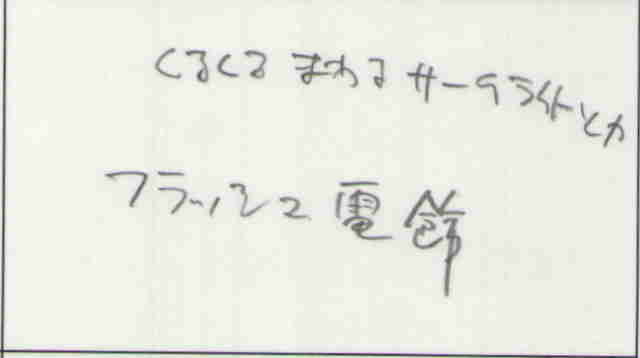 くるくるまわるサークライトとか
フラッシュ電節